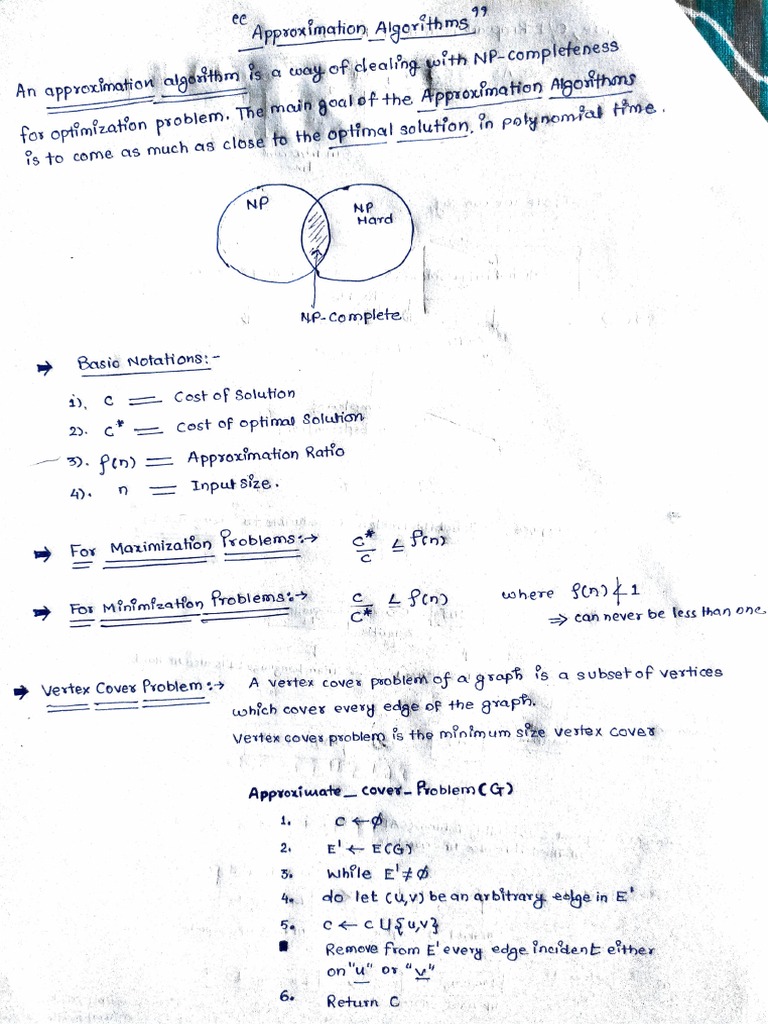 “Approximation Algorithms”
An approximation algorithm is a way of dealing with NP-completeness
for optimization problem. The main goal of the Approximation Algorithms
is to come as much as close to the optimal solution, in polynomial time.
NP
NP
Hard
NP-Complete
→ Basic Notations:-
1). C = Cost of Solution
2). C* = Cost of optimal Solution
3). ρ(n) = Approximation Ratio
4). n = Input size.
→ For Maximization Problems:→ C*/C ≤ ρ(n)
→ For Minimization Problems:→ C/C* ≤ ρ(n) where ρ(n) ≮ 1
⇒ can never be less than one
→ Vertex Cover Problem:→ A vertex cover problem of a graph is a subset of vertices
which cover every edge of the graph.
Vertex cover problem is the minimum size vertex cover
Approximate_cover_Problem(G)
1. C ← ∅
2. E' ← E(G)
3. While E' ≠ ∅
4. do let (u,v) be an arbitrary edge in E'
5. C ← C U {u,v}
Remove from E' every edge incident either
on "u" or "v"
6. Return C